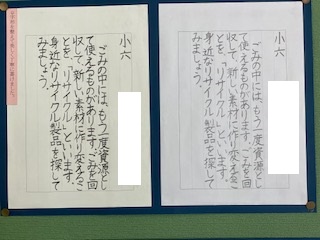 小六
ごみの中には、もう一度資源とし
て使えるものがあります。ごみを回
収して、新しい素材に作り変えるこ
とを、「リサイクル」といいます。
身近なリサイクル製品を探して
みましょう。
小六
ごみの中には、もう一度資源とし
て使えるものがあります。ごみを回
収して、新しい素材に作り変えるこ
とを、「リサイクル」といいます。
身近なリサイクル製品を探して
みましょう。